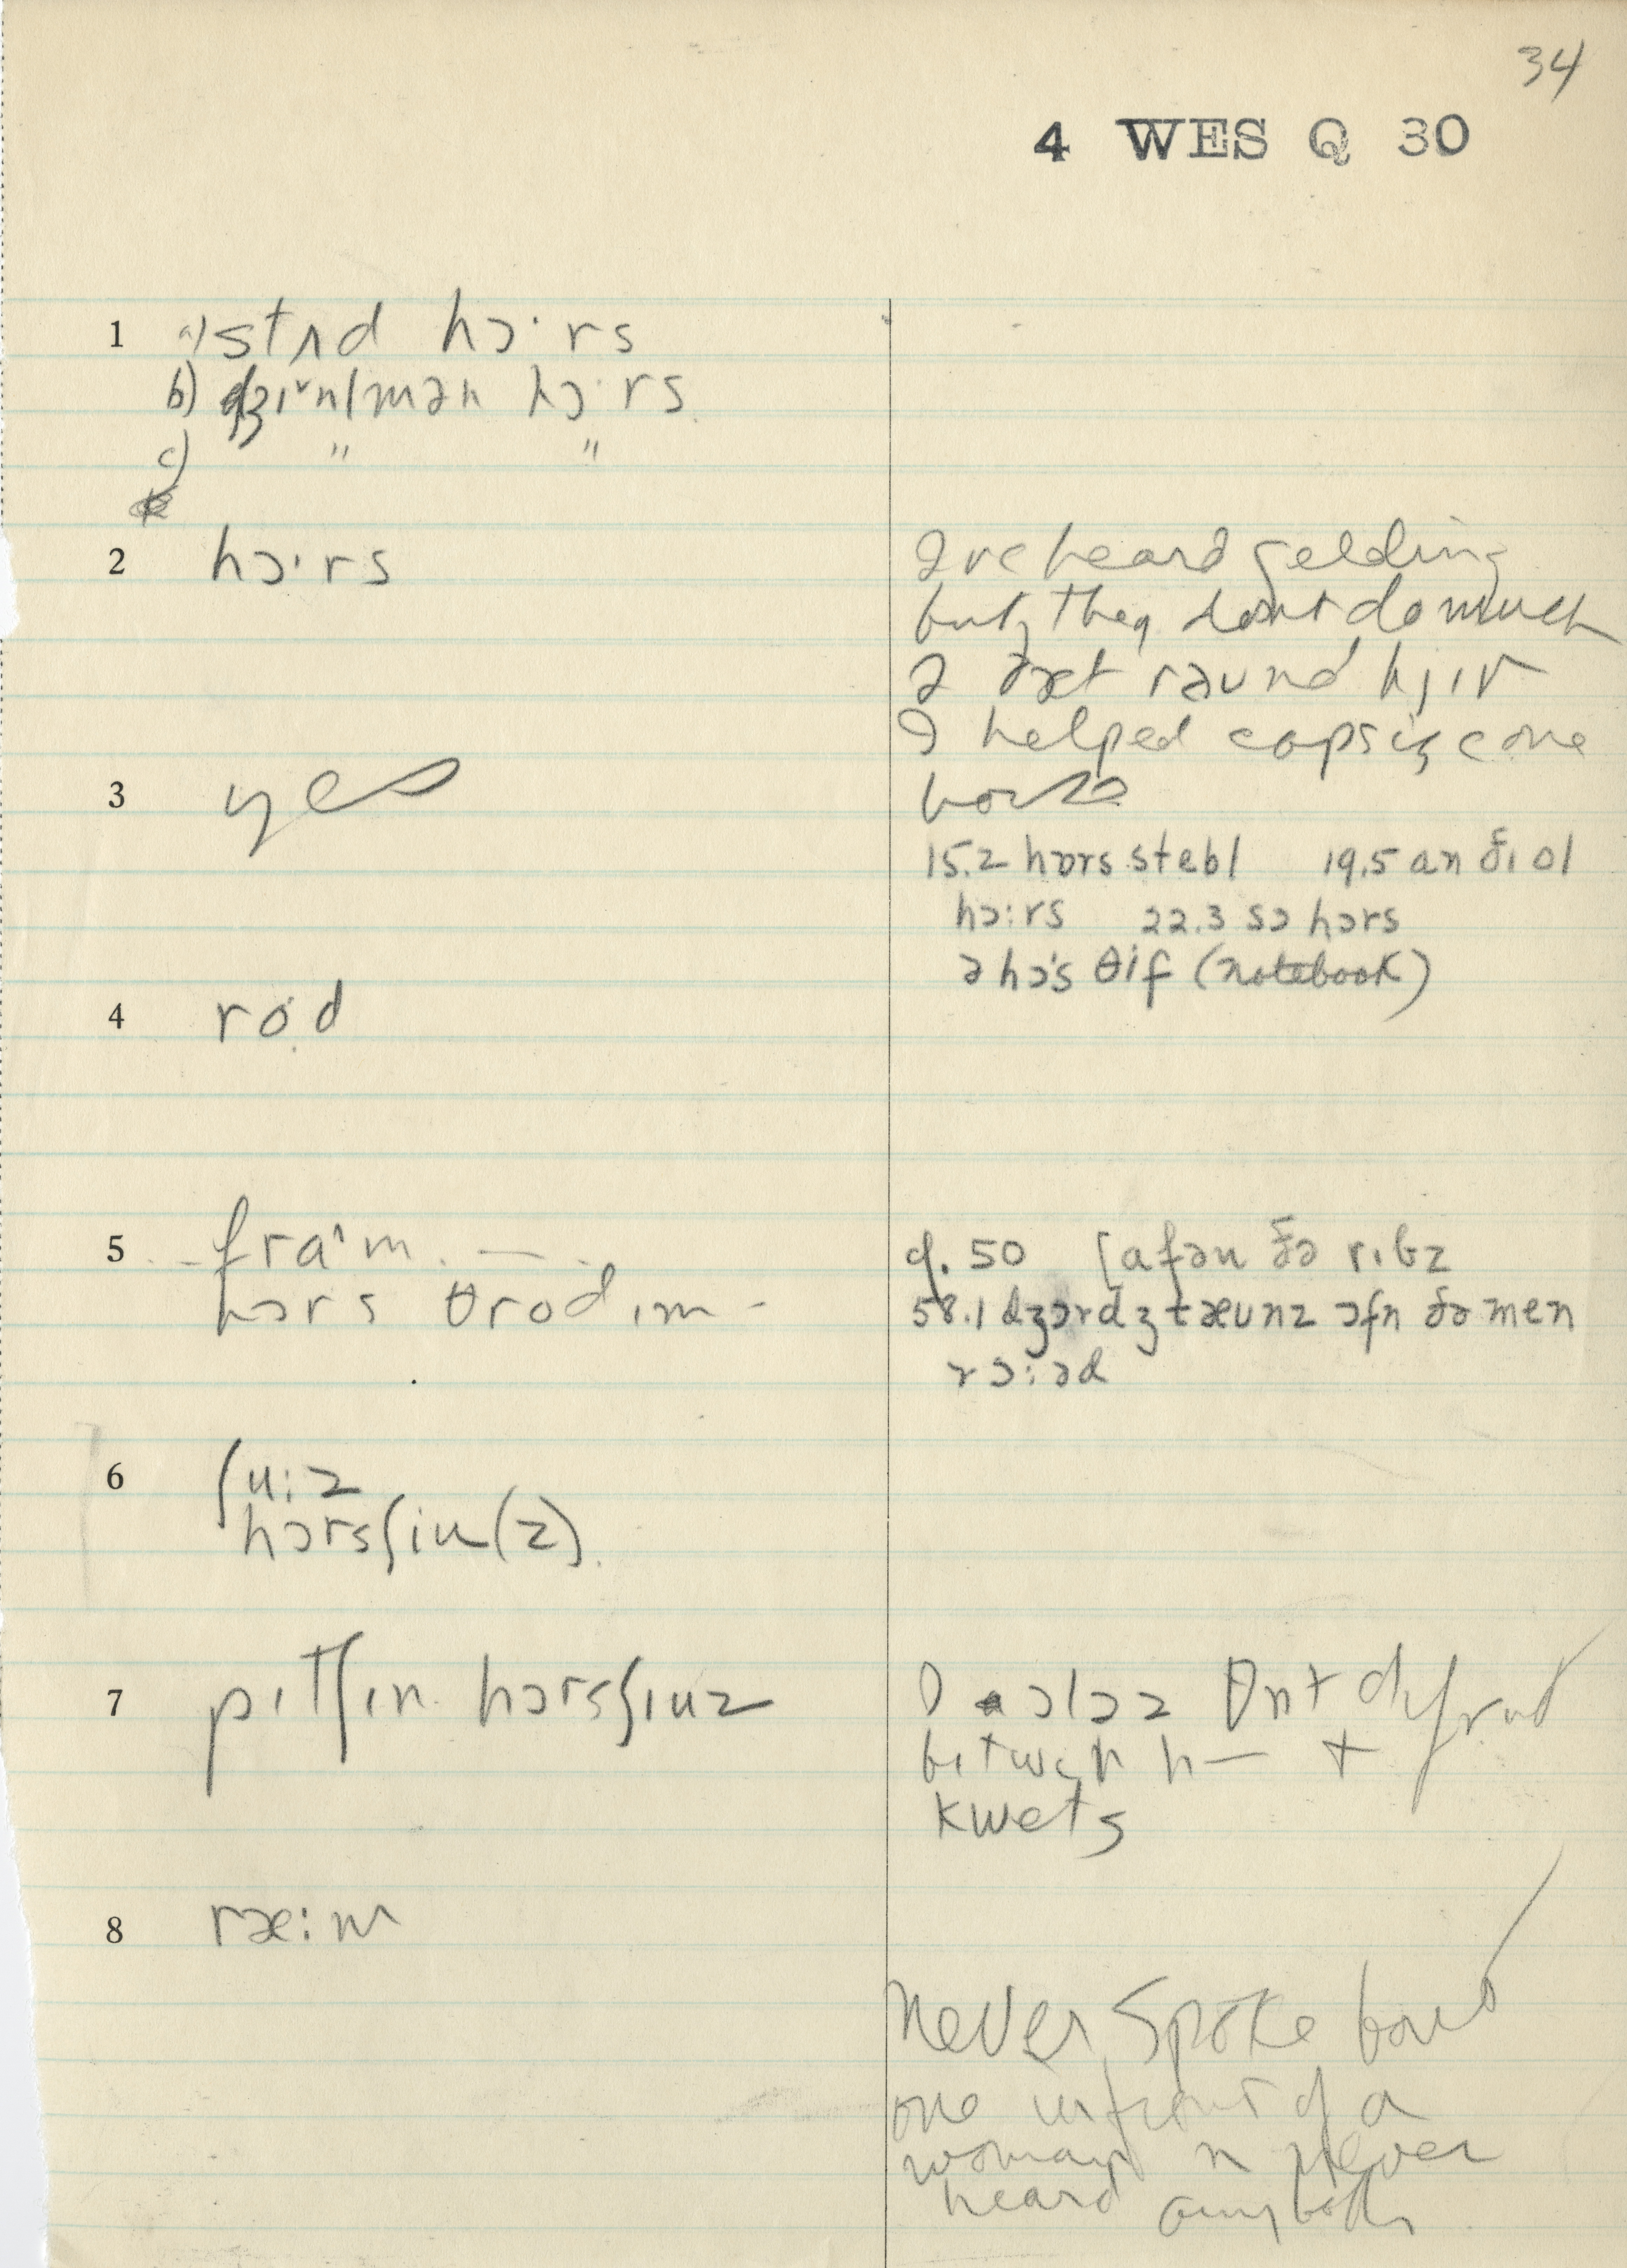 34
4 WES Q 30
1 a) stʌd hɔ·rs
b) dʒɪ˅nlmən hɔ·rs
c) " "
2 hɔ·rs
I've heard gelding
but they don't do much
ə ðæt raund hjɪr
I helped capsize one
horse
3 yes
15.2 hɒrs stebl 19.5 an ðɪ ol
hɔ:rs 22.3 sɔ hɔrs
ə hɔ's θif (notebook)
4 rod
5 fra^m —
hɔrs θrod ɪm -
q. 50 [afən ðə rɪbz
58.1 dʒɔrdʒtæunz ɔfn ðə men
rɔ:əd
6 ʃu:z
hɔrsʃiu(z)
7 pɪtʃɪn hɔrsʃiuz
between h— +
kwets
8 ræ:m
never spoke bout
one in front of a
woman n never
heard anybody